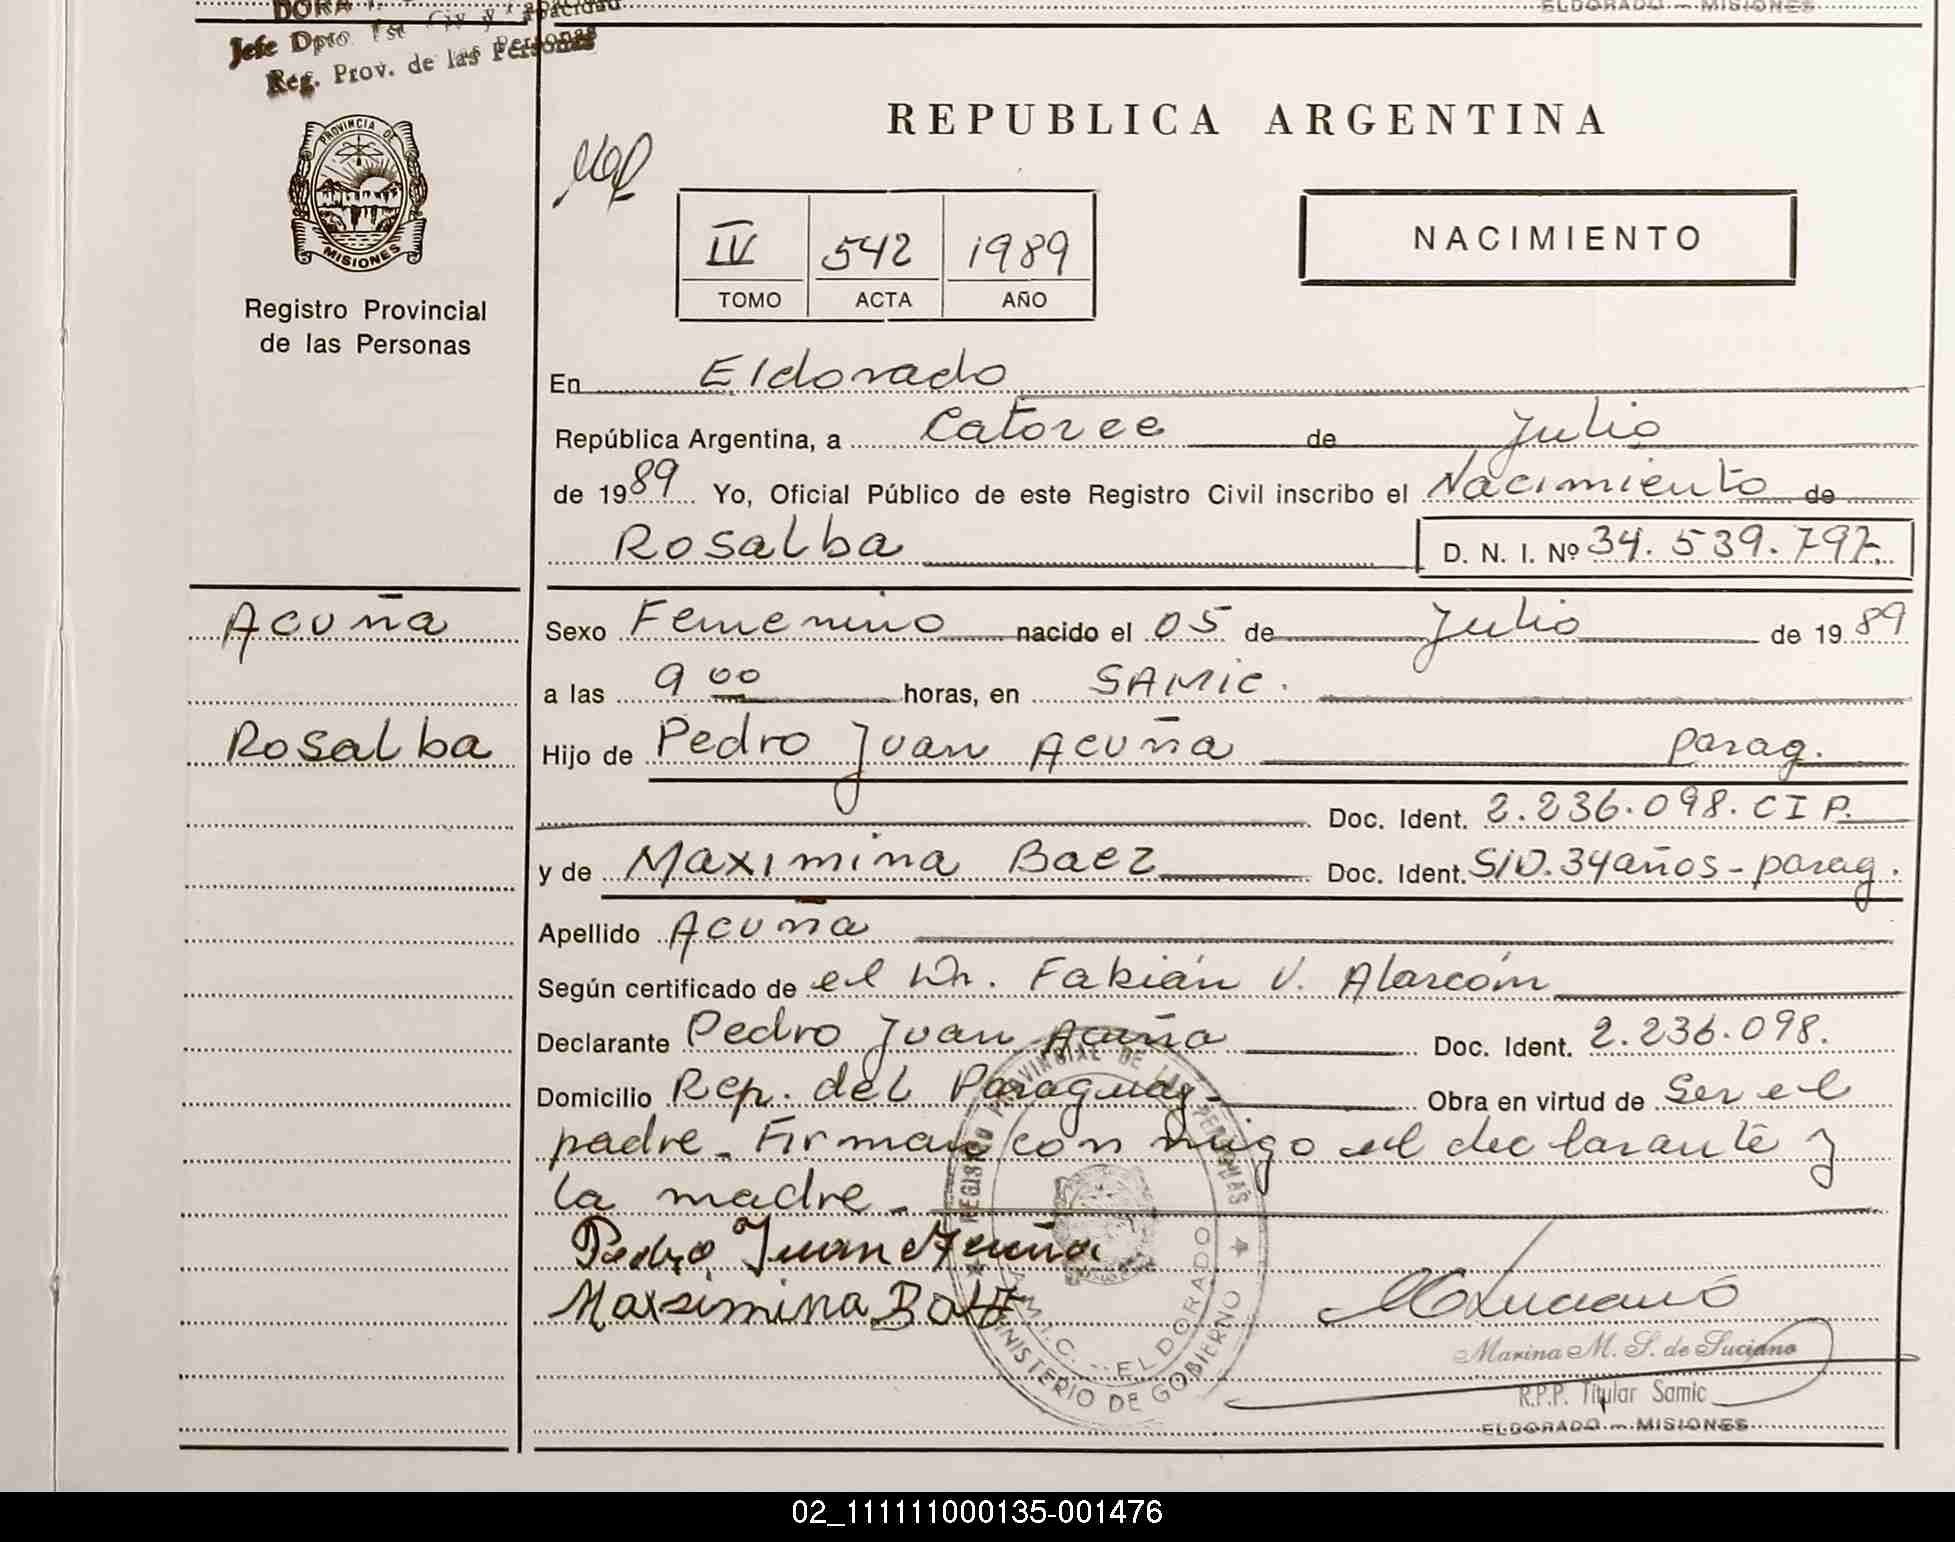 DORA
Jefe Dpto. Est. Civ. y Capacidad
Reg. Prov. de las Personas
ELDORADO — MISIONES
PROVINCIA DE
MISIONES
Registro Provincial
de las Personas
REPUBLICA ARGENTINA
IV 542 1989
TOMO ACTA AÑO
NACIMIENTO
En Eldorado
República Argentina, a Catorce de Julio
de 1989 Yo, Oficial Público de este Registro Civil inscribo el Nacimiento de
Rosalba D. N. I. Nº 34.539.797.
Acuña
Rosalba
Sexo Femenino nacido el 05 de Julio de 1989
a las 9 00 horas, en SAMIC.
Hijo de Pedro Juan Acuña parag.
Doc. Ident. 2.236.098. CIP.
y de Maximina Baez Doc. Ident. S/D. 34 años - parag.
Apellido Acuña
Según certificado de el Dr. Fabián V. Alarcón
Declarante Pedro Juan Acuña Doc. Ident. 2.236.098.
Domicilio Rep. del Paraguay - Obra en virtud de ser el
padre - Firman con migo el declarante y
la madre -
Pedro Juan Acuña
Maxsimina
REGISTRO PROVINCIAL DE LAS PERSONAS
S.A.M.I.C. - ELDORADO
MINISTERIO DE GOBIERNO
Marina M. S. de Luciano
R.P.P. Titular Samic
ELDORADO — MISIONES
02_111111000135-001476